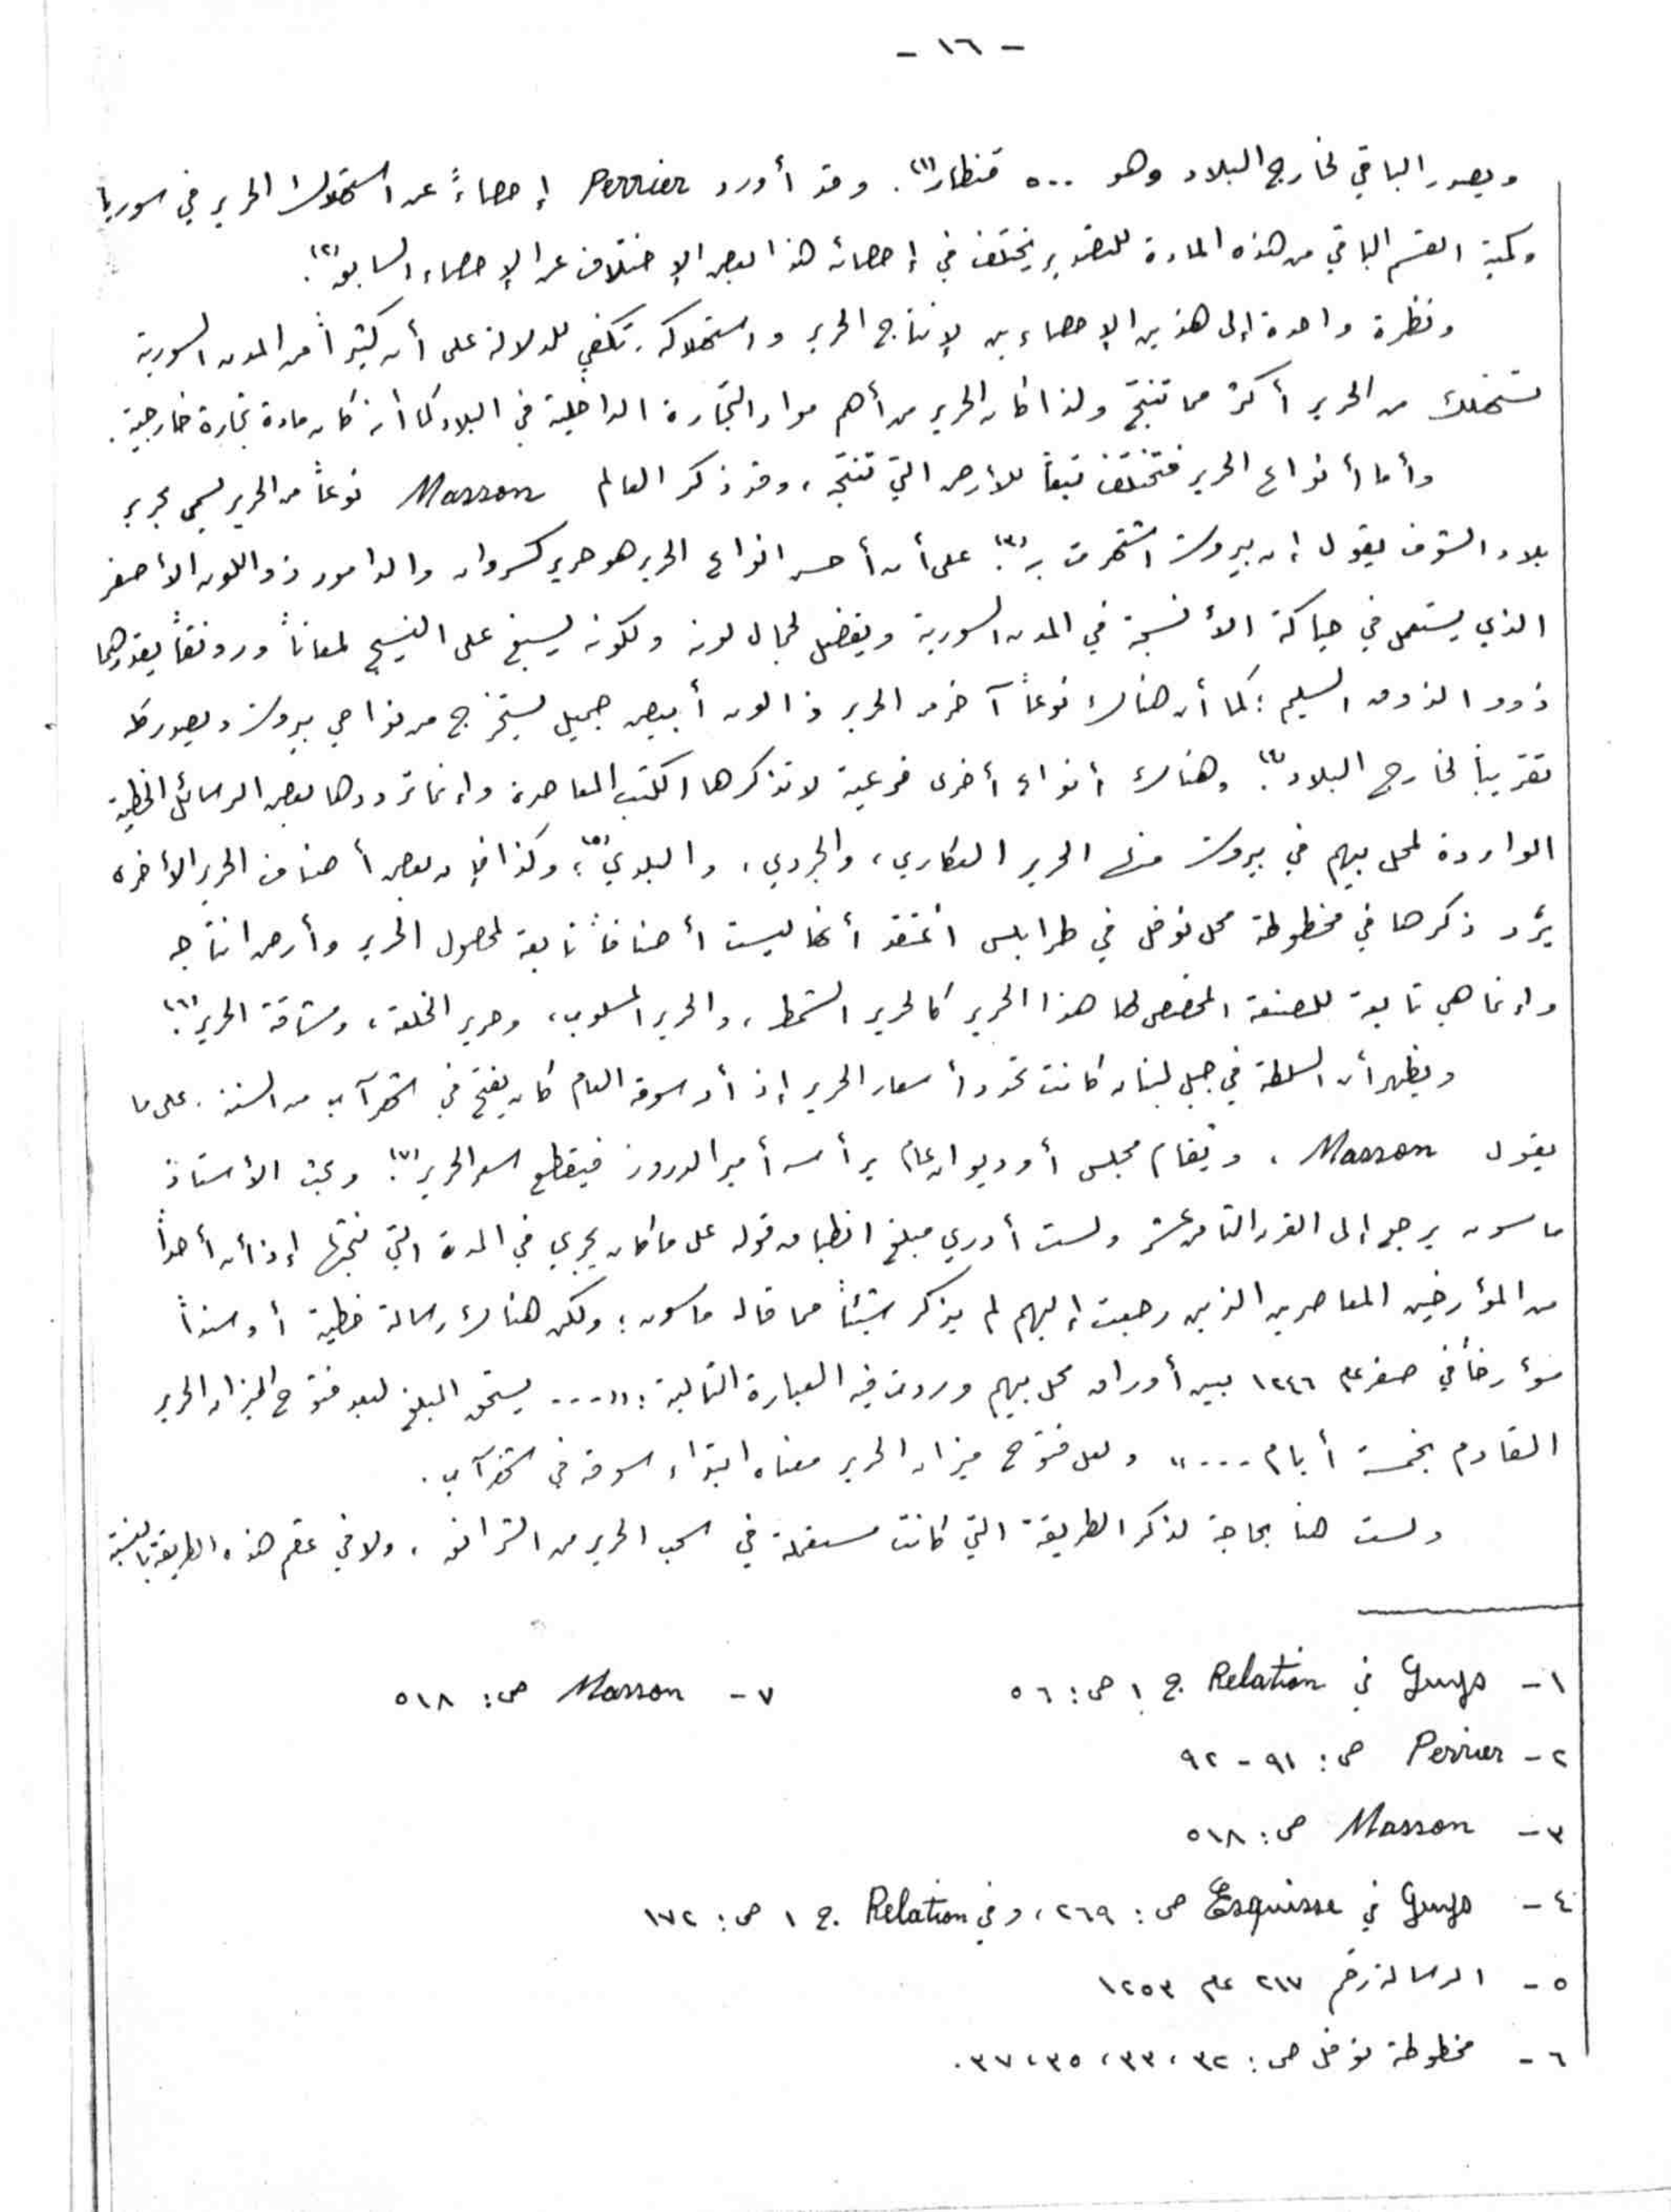 - ١٦ -
ويصدر الباقي لخارج البلاد وهو ٥٠٠٠ قنطار(١). وقد أورد Perrier إحصاءً عن استهلاك الحرير في سوريا
وكمية القسم الباقي من هذه المادة للتصدير يختلف في إحصائه هذا بعض الإختلاف عن الإحصاء السابق(٢).
ونظرة واحدة إلى هذين الإحصاءين لإنتاج الحرير واستهلاكه، تكفي للدلالة على أن كثيراً من المدن السورية
تستهلك من الحرير أكثر مما تنتج ولذا كان الحرير من أهم مواد التجارة الداخلية في البلاد كما أنه كان مادة تجارة خارجية.
وأما أنواع الحرير فتختلف تبعاً للأرض التي تنتجه، وقد ذكر العالم Masson نوعاً من الحرير يسمى بحرير
بلاد الشوف يقول إن بيروت اشتهرت به(٣)؛ على أن أحسن انواع الحرير هو حرير كسروان والدامور ذو اللون الأصفر
الذي يستعمل في حياكة الأنسجة في المدن السورية ويفضل لجمال لونه ولكونه يسبغ على النسيج لمعاناً ورونقاً يقدرهما
ذوو الذوق السليم؛ كما أن هناك نوعاً آخر من الحرير ذا لون أبيض جميل يستخرج من نواحي بيروت ويصدر كله
تقريباً لخارج البلاد(٤)؛ وهناك أنواع أخرى فرعية لا تذكرها الكتب المعاصرة وإنما تردها بعض الرسائل الخطية
الواردة لمحل بيهم في بيروت منها الحرير العكاري، والجردي، والبلدي(٥)؛ وكذا فإن بعض أصناف الحرير الأخرى
يَرد ذكرها في مخطوطة محل نوفل في طرابلس اعتقد أنها ليست أصنافاً تابعة لمحصول الحرير وأرض انتاجه
وإنما هي تابعة للصنعة المخصص لها هذا الحرير كالحرير الشمط، والحرير المسلوب، وحرير الخلعة، ومشاقة الحرير(٦)؛
ويظهر أن السلطة في جبل لبنان كانت تحدد أسعار الحرير إذ أن سوقه العام كان يفتح في شهر آب من السنة، على ما
يقول Masson، ويُقام مجلس أو ديوان عام يرأسه أمير الدروز فيقطع سعر الحرير(٧)؛ وبحث الأستاذ
ماسون يرجع إلى القرن الثامن عشر ولست أدري مبلغ انطباق قوله على ما كان يجري في المدة التي نبحثها إذ أن أحداً
من المؤرخين المعاصرين الذين رجعت إليهم لم يذكر شيئاً مما قاله ماسون؛ ولكن هناك رسالة خطية أو سنداً
مؤرخاً في صفر عام ١٢٤٦ بين أوراق محل بيهم وردت فيه العبارة التالية: "... يستحق المبلغ لبعد فتوح الميزان الحرير
القادم بخمسة أيام ...." ولعل فتوح ميزان الحرير معناه ابتداء سوقه في شهر آب.
ولست هنا بحاجة لذكر الطريقة التي كانت مستعملة في سحب الحرير من الشرانق، ولا في عقم هذه الطريقة بالنسبة
١- Guys في Relation ج ١ ص: ٥٦
٧- Masson ص: ٥١٨
٢- Perrier ص: ٩١ - ٩٢
٣- Masson ص: ٥١٨
٤- Guys في Esquisse ص: ٢٦٩، وفي Relation ج ١ ص: ١٧٢
٥- الرسالة رقم ٢١٧ عام ١٢٥٣
٦- مخطوطة نوفل ص: ٣٢، ٣٣، ٣٥، ٣٧.